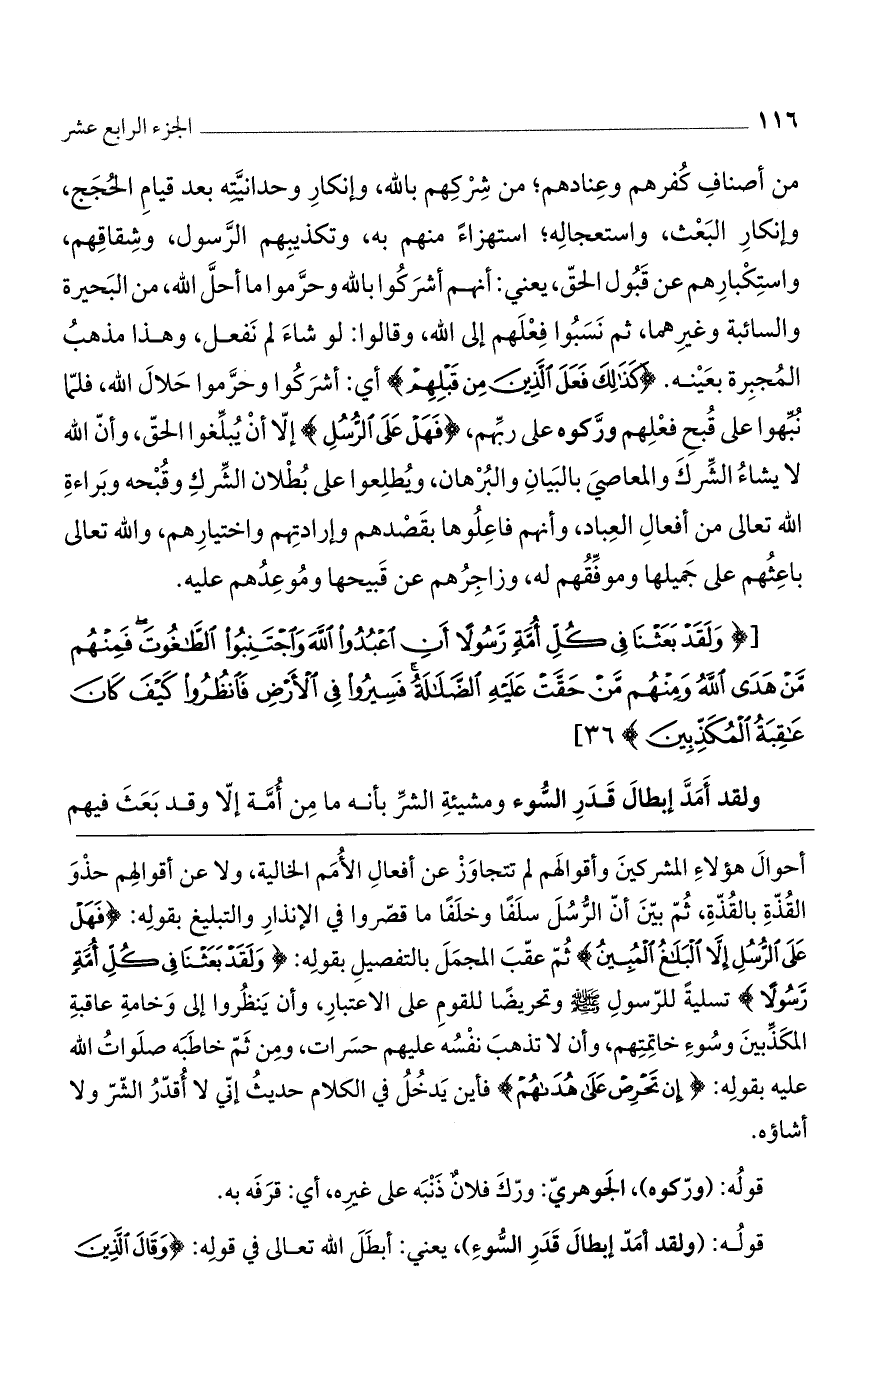 ١١٦ الجزء الرابع عشر
من أصنافِ كُفرهم وعِنادهم؛ من شِرْكِهم بالله، وإنكارِ وحدانيَّتِه بعد قيامِ الحُجَج،
وإنكارِ البَعْث، واستعجالِه؛ استهزاءً منهم به، وتكذيبِهم الرَّسول، وشِقاقِهم،
واستِكْبارِهم عن قَبُول الحقّ، يعني: أنهم أشرَكُوا بالله وحرَّموا ما أحلَّ الله، من البَحيرة
والسائبة وغيرِهما، ثم نَسَبُوا فِعْلَهم إلى الله، وقالوا: لو شاءَ لم نَفعل، وهذا مذهبُ
المُجبِرة بعَيْنه. ﴿كَذَٰلِكَ فَعَلَ ٱلَّذِينَ مِن قَبْلِهِمْ﴾ أي: أشرَكُوا وحرَّموا حَلالَ الله، فلمّا
نُبِّهوا على قُبحِ فعْلِهم ورَّكوه على ربِّهم، ﴿فَهَلْ عَلَى ٱلرُّسُلِ﴾ إلّا أنْ يُبلِّغوا الحقّ، وأنّ الله
لا يشاءُ الشِّركَ والمعاصيَ بالبَيانِ والبُرْهان، ويُطلِعوا على بُطْلان الشِّركِ وقُبْحه وبَراءةِ
الله تعالى من أفعالِ العِباد، وأنهم فاعِلُوها بقَصْدهم وإرادتِهم واختيارِهم، والله تعالى
باعِثُهم على جَميلها وموفِّقُهم له، وزاجِرُهم عن قَبيحها ومُوعِدُهم عليه.
[﴿وَلَقَدْ بَعَثْنَا فِى كُلِّ أُمَّةٍ رَّسُولًا أَنِ ٱعْبُدُوا۟ ٱللَّهَ وَٱجْتَنِبُوا۟ ٱلطَّٰغُوتَ ۖ فَمِنْهُم
مَّنْ هَدَى ٱللَّهُ وَمِنْهُم مَّنْ حَقَّتْ عَلَيْهِ ٱلضَّلَٰلَةُ ۚ فَسِيرُوا۟ فِى ٱلْأَرْضِ فَٱنظُرُوا۟ كَيْفَ كَانَ
عَٰقِبَةُ ٱلْمُكَذِّبِينَ﴾ ٣٦]
ولقد أَمَدَّ إبطالَ قَدَرِ السُّوء ومشيئةِ الشرِّ بأنه ما مِن أُمَّة إلّا وقد بَعَثَ فيهم
أحوالَ هؤلاءِ المشركينَ وأقوالَهم لم تتجاوَزْ عن أفعالِ الأُمَم الخالية، ولا عن أقوالِهم حذْوَ
القُذّةِ بالقُذّةِ، ثُمّ بيّنَ أنّ الرُّسُلَ سلَفًا وخلَفًا ما قصّروا في الإنذارِ والتبليغِ بقولِه: ﴿فَهَلْ
عَلَى ٱلرُّسُلِ إِلَّا ٱلْبَلَٰغُ ٱلْمُبِينُ﴾ ثُمّ عقّبَ المجمَلَ بالتفصيلِ بقولِه: ﴿وَلَقَدْ بَعَثْنَا فِى كُلِّ أُمَّةٍ
رَّسُولًا﴾ تسليةً للرّسولِ ﷺ وتحريضًا للقومِ على الاعتبارِ، وأن يَنظُروا إلى وَخامةِ عاقبةِ
المكَذِّبينَ وسُوءِ خاتِمتِهم، وأن لا تذهبَ نفْسُه عليهم حسَرات، ومِن ثَمّ خاطَبَه صلَواتُ الله
عليه بقولِه: ﴿إِن تَحْرِصْ عَلَىٰ هُدَىٰهُمْ﴾ فأين يَدخُلُ في الكلام حديثُ إنّي لا أُقدِّرُ الشّرّ ولا
أشاؤه.
قولُه: (ورّكوه)، الجَوهريّ: ورّكَ فلانٌ ذَنْبَه على غيرِه، أي: قرَفَه به.
قولُه: (ولقد أمَدّ إبطالَ قَدَرِ السُّوءِ)، يعني: أبطَلَ الله تعالى في قولِه: ﴿وَقَالَ ٱلَّذِينَ